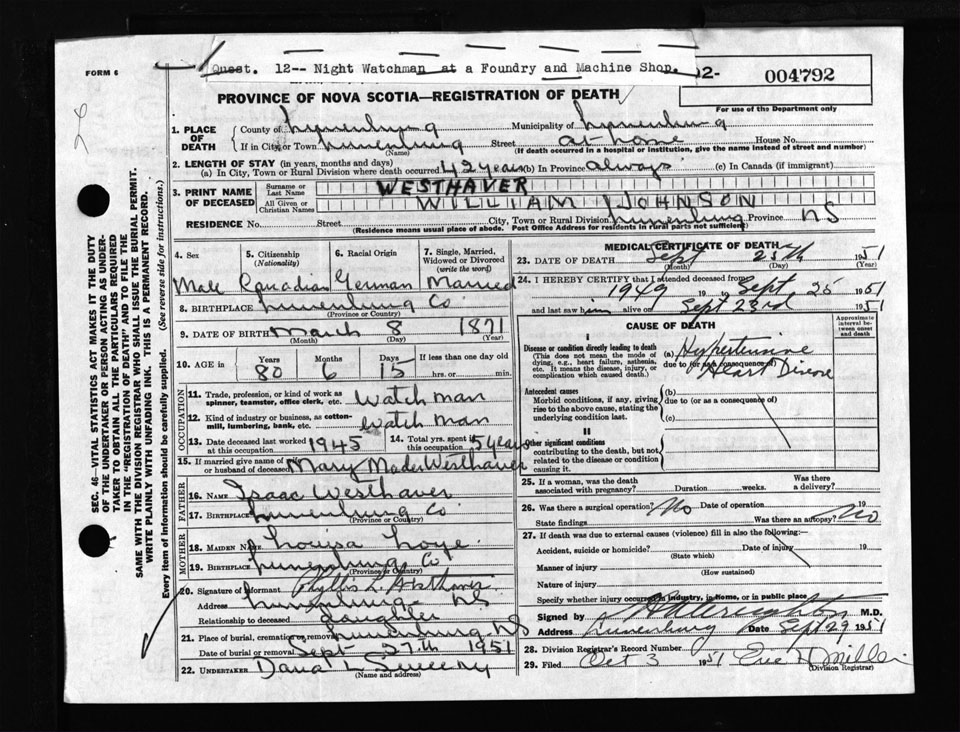 FORM 6
26
Quest. 12-- Night Watchman at a Foundry and Machine Shop.
12- 004792
For use of the Department only
PROVINCE OF NOVA SCOTIA—REGISTRATION OF DEATH
1. PLACE OF DEATH
County of Lunenburg Municipality of Lunenburg
If in City or Town Lunenburg Street at home House No.
(Name) (If death occurred in a hospital or institution, give the name instead of street and number)
2. LENGTH OF STAY (in years, months and days)
(a) In City, Town or Rural Division where death occurred 42 years (b) In Province always (c) In Canada (if immigrant)
3. PRINT NAME OF DECEASED
Surname or Last Name WESTHAVER
All Given or Christian Names WILLIAM JOHNSON
RESIDENCE No. Street City, Town or Rural Division Lunenburg Province NS
(Residence means usual place of abode. Post Office Address for residents in rural parts not sufficient)
SEC. 46—VITAL STATISTICS ACT MAKES IT THE DUTY
OF THE UNDERTAKER OR PERSON ACTING AS UNDER-
TAKER TO OBTAIN ALL THE PARTICULARS REQUIRED
IN THE "REGISTRATION OF DEATH" AND TO FILE THE
SAME WITH THE DIVISION REGISTRAR WHO SHALL ISSUE THE BURIAL PERMIT.
WRITE PLAINLY WITH UNFADING INK. THIS IS A PERMANENT RECORD.
Every item of information should be carefully supplied. (See reverse side for instructions).
4. Sex 5. Citizenship (Nationality) 6. Racial Origin 7. Single, Married, Widowed or Divorced (write the word)
Male Canadian German Married
8. BIRTHPLACE Lunenburg Co
(Province or Country)
9. DATE OF BIRTH March 8 1871
(Month) (Day) (Year)
10. AGE in Years Months Days If less than one day old
80 6 15 hrs. or min.
OCCUPATION
11. Trade, profession, or kind of work as spinner, teamster, office clerk, etc. Watch man
12. Kind of industry or business, as cotton-mill, lumbering, bank, etc. Watch man
13. Date deceased last worked at this occupation 1945 14. Total yrs. spent in this occupation 5 years
15. If married give name of wife or husband of deceased Mary Mader Westhaver
FATHER
16. NAME Isaac Westhaver
17. BIRTHPLACE Lunenburg Co
(Province or Country)
MOTHER
18. MAIDEN NAME Louisa Loye
19. BIRTHPLACE Lunenburg Co
(Province or Country)
20. Signature of informant Phyllis L. Westhaver
Address Lunenburg NS
Relationship to deceased daughter
21. Place of burial, cremation or removal Lunenburg NS
Date of burial or removal Sept 27th 1951
22. UNDERTAKER Dana L Sweeny
(Name and address)
MEDICAL CERTIFICATE OF DEATH
23. DATE OF DEATH Sept 25th 1951
(Month) (Day) (Year)
24. I HEREBY CERTIFY that I attended deceased from
1949 19 to Sept 25 1951
and last saw him alive on Sept 23rd 1951
CAUSE OF DEATH
Approximate interval between onset and death
I
Disease or condition directly leading to death
(This does not mean the mode of dying, e.g., heart failure, asthenia, etc. It means the disease, injury, or complication which caused death.)
(a) Hypertensive
due to (or as a consequence of)
Heart Disease
Antecedent causes
Morbid conditions, if any, giving rise to the above cause, stating the underlying condition last.
(b)
due to (or as a consequence of)
(c)
II
Other significant conditions
contributing to the death, but not related to the disease or condition causing it.
25. If a woman, was the death associated with pregnancy? Duration weeks. Was there a delivery?
26. Was there a surgical operation? No Date of operation 19
State findings Was there an autopsy? No
27. If death was due to external causes (violence) fill in also the following:
Accident, suicide or homicide? Date of injury 19
(State which)
Manner of injury
(How sustained)
Nature of injury
Specify whether injury occurred in industry, in home, or in public place
Signed by M.D.
Address Lunenburg Date Sept 29 1951
28. Division Registrar's Record Number
29. Filed Oct 3 1951 Eric H Miller
(Division Registrar)